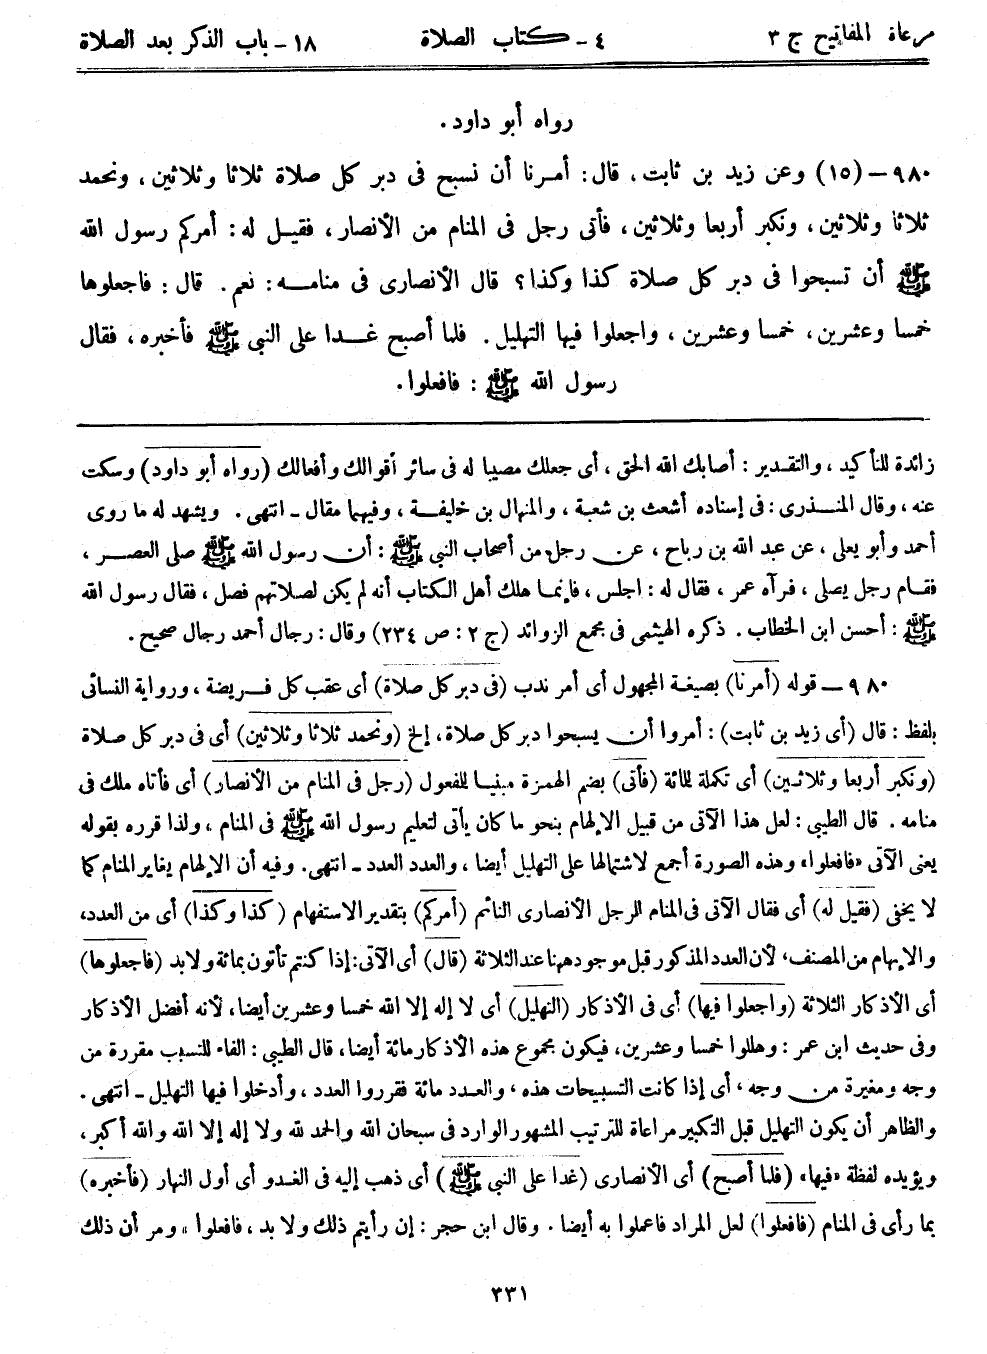 مرعاة المفاتيح ج ٣ ٤ - كتاب الصلاة ١٨ - باب الذكر بعد الصلاة
رواه أبو داود .
٩٨٠ - (١٥) وعن زيد بن ثابت ، قال : أمرنا أن نسبح فى دبر كل صلاة ثلاثا وثلاثين ، ونحمد
ثلاثا وثلاثين ، ونكبر أربعا وثلاثين ، فأتى رجل فى المنام من الأنصار ، فقيل له : أمركم رسول الله
ﷺ أن تسبحوا فى دبر كل صلاة كذا وكذا ؟ قال الأنصارى فى منامه : نعم . قال : فاجعلوها
خمسا وعشرين ، خمسا وعشرين ، واجعلوا فيها التهليل . فلما أصبح غدا على النبى ﷺ فأخبره ، فقال
رسول الله ﷺ : فافعلوا .
زائدة للتأكيد ، والتقدير : أصابك الله الحق ، أى جعلك مصيبا له فى سائر أقوالك وأفعالك (رواه أبو داود) وسكت
عنه ، وقال المنذرى : فى إسناده أشعث بن شعبة ، والمنهال بن خليفة ، وفيهما مقال - انتهى . ويشهد له ما روى
أحمد وأبو يعلى ، عن عبد الله بن رباح ، عن رجل من أصحاب النبى ﷺ : أن رسول الله ﷺ صلى العصر ،
فقام رجل يصلى ، فرآه عمر ، فقال له : اجلس ، فإنما هلك أهل الكتاب أنه لم يكن لصلاتهم فصل ، فقال رسول الله
ﷺ : أحسن ابن الخطاب . ذكره الهيثمى فى مجمع الزوائد (ج ٢ : ص ٢٣٤) وقال : رجال أحمد رجال صحيح .
٩٨٠ - قوله (أمرنا) بصيغة المجهول أى أمر ندب (فى دبر كل صلاة) أى عقب كل فريضة ، ورواية النسائى
بلفظ : قال (أى زيد بن ثابت) : أمروا أن يسبحوا دبر كل صلاة ، إلخ (ونحمد ثلاثا وثلاثين) أى فى دبر كل صلاة
(ونكبر أربعا وثلاثين) أى تكملة للمائة (فأتى) بضم الهمزة مبنيا للمفعول (رجل فى المنام من الأنصار) أى فأتاه ملك فى
منامه . قال الطيبى : لعل هذا الآتى من قبيل الإلهام بنحو ما كان يأتى لتعليم رسول الله ﷺ فى المنام ، ولذا قرره بقوله
يعنى الآتى «فافعلوا» وهذه الصورة أجمع لاشتمالها على التهليل أيضا ، والعدد العدد - انتهى . وفيه أن الإلهام يغاير المنام كما
لا يخفى (فقيل له) أى فقال الآتى فى المنام للرجل الأنصارى النائم (أمركم) بتقدير الاستفهام (كذا وكذا) أى من العدد ،
والإبهام من المصنف ، لأن العدد المذكور قبل موجود ههنا عند الثلاثة (قال) أى الآتى : إذا كنتم تأتون بمائة ولابد (فاجعلوها)
أى الأذكار الثلاثة (واجعلوا فيها) أى فى الأذكار (التهليل) أى لا إله إلا الله خمسا وعشرين أيضا ، لأنه أفضل الأذكار
وفى حديث ابن عمر : وهللوا خمسا وعشرين ، فيكون مجموع هذه الأذكار مائة أيضا ، قال الطيبى : الفاء للتسبب مقررة من
وجه ومغيرة من وجه ، أى إذا كانت التسبيحات هذه ، والعدد مائة فقرروا العدد ، وأدخلوا فيها التهليل - انتهى .
والظاهر أن يكون التهليل قبل التكبير مراعاة للترتيب المشهور الوارد فى سبحان الله والحمد لله ولا إله إلا الله والله أكبر ،
ويؤيده لفظة «فيها» (فلما أصبح) أى الأنصارى (غدا على النبى ﷺ) أى ذهب إليه فى الغدو أى أول النهار (فأخبره)
بما رأى فى المنام (فافعلوا) لعل المراد فاعملوا به أيضا . وقال ابن حجر : إن رأيتم ذلك ولا بد ، فافعلوا ، ومر أن ذلك
٣٣١